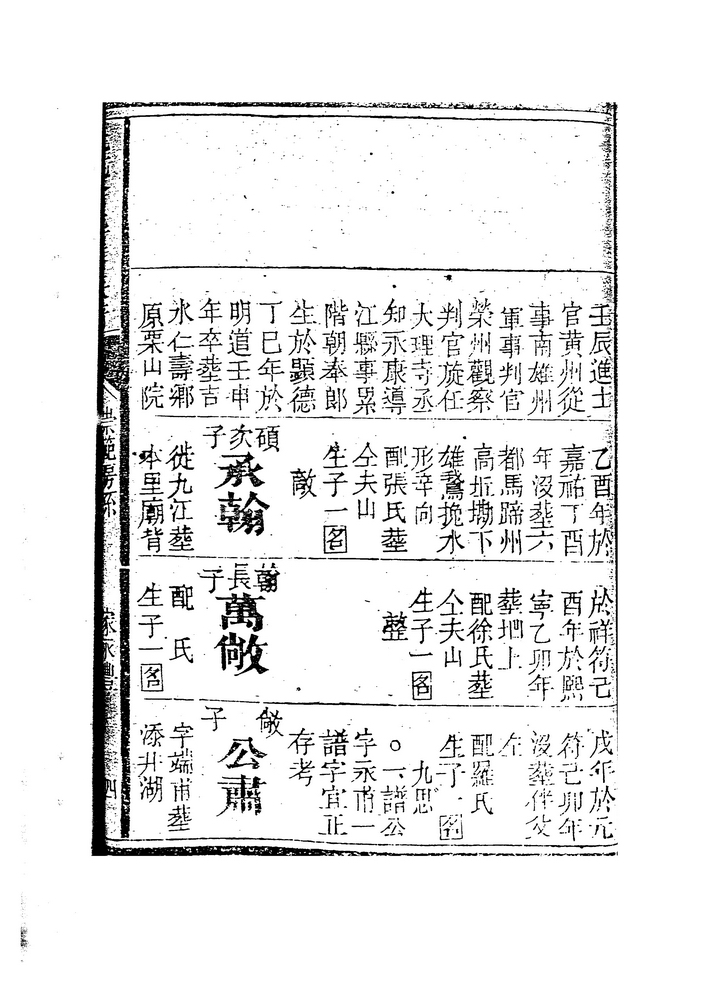 壬辰進士
官黃州從
事南雄州
軍事判官
榮州觀察
判官旋任
大理寺丞
知永康導
江縣事累
階朝奉郎
生於顯德
丁巳年於
明道壬申
年卒塟吉
水仁壽鄉
原栗山院
乙酉年於
嘉祐丁酉
年沒塟六
都馬蹄州
高坵塝下
雄鵞挽水
形辛向
配張氏塟
仝夫山
生子一名
敵
碩次子
承翰
徙九江塟
本里廟背
於祥符己
酉年於熙
寧乙卯年
塟垇上
配徐氏塟
仝夫山
生子一名
整
翰長子
萬敞
配 氏
生子一名
戌年於元
符己卯年
沒塟伴父
左
配羅氏
生子一名
九思
○一譜公
字永甫一
譜字宜正
存考
敞子
公肅
字端甫塟
添井湖
崇範房系
家永豊
四